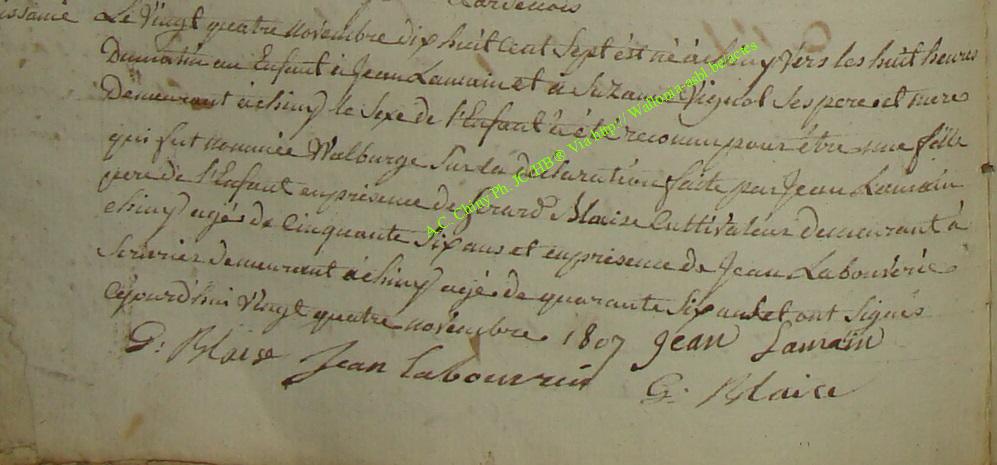 Lardenois
issance Le Vingt quatre novembre dix huit cent Sept ést né a chiny Vèrs les huit heures
Dumatin un Enfant a Jean Lamain et a Suzanne Vignol Ses pere et mere
Demeurant a chiny le Sexe de l'Enfant a été reconnu pour être une fille
qui fut nommée Walburge Sur la déclaration faite par Jean Lamain
pere de l'Enfant en présence de Gerard Blaise Cultivateur demeurant à
chiny agé de Cinquante Six ans et en présence de Jean Labouverie
demeurant a chiny agé de quarante Six ans et ont signés
cejourd'hui Vingt quatre novémbre 1807 Jean Lamain
G: Blaise Jean Labouverie G: Blaise
A.C. Chiny Ph. JC/HB® Via http:// Wallonia-asbl be/actes